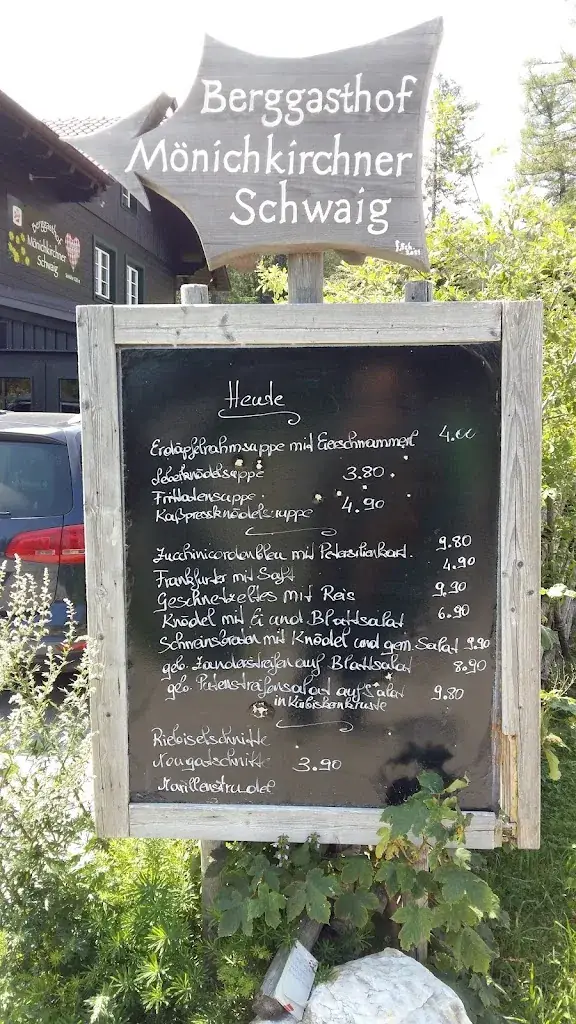 Berggasthof
Mönichkirchner
Schwaig
Berggasthof
Mönichkirchner
Schwaig
Heute
Erdäpfelrahmsuppe mit Eierschwammerl 4.00
Leberknödelsuppe 3.80
Frittatensuppe
Kaßpressknödelsuppe 4.90
Zucchinicordonbleu mit Petersilienkart. 9.80
Frankfurter mit Saft 4.90
Geschnetzeltes mit Reis 9,90
Knödel mit Ei und Blattsalat 6.90
Schweinsbraten mit Knödel und gem. Salat 9.90
geb. Zanderstreifen auf Blattsalat 8.90
geb. Putenstreifensalat auf Salat 9.80
in Kürbiskernkruste
Ribiselschnitte
Nougatschnitte 3.90
Marillenstrudel